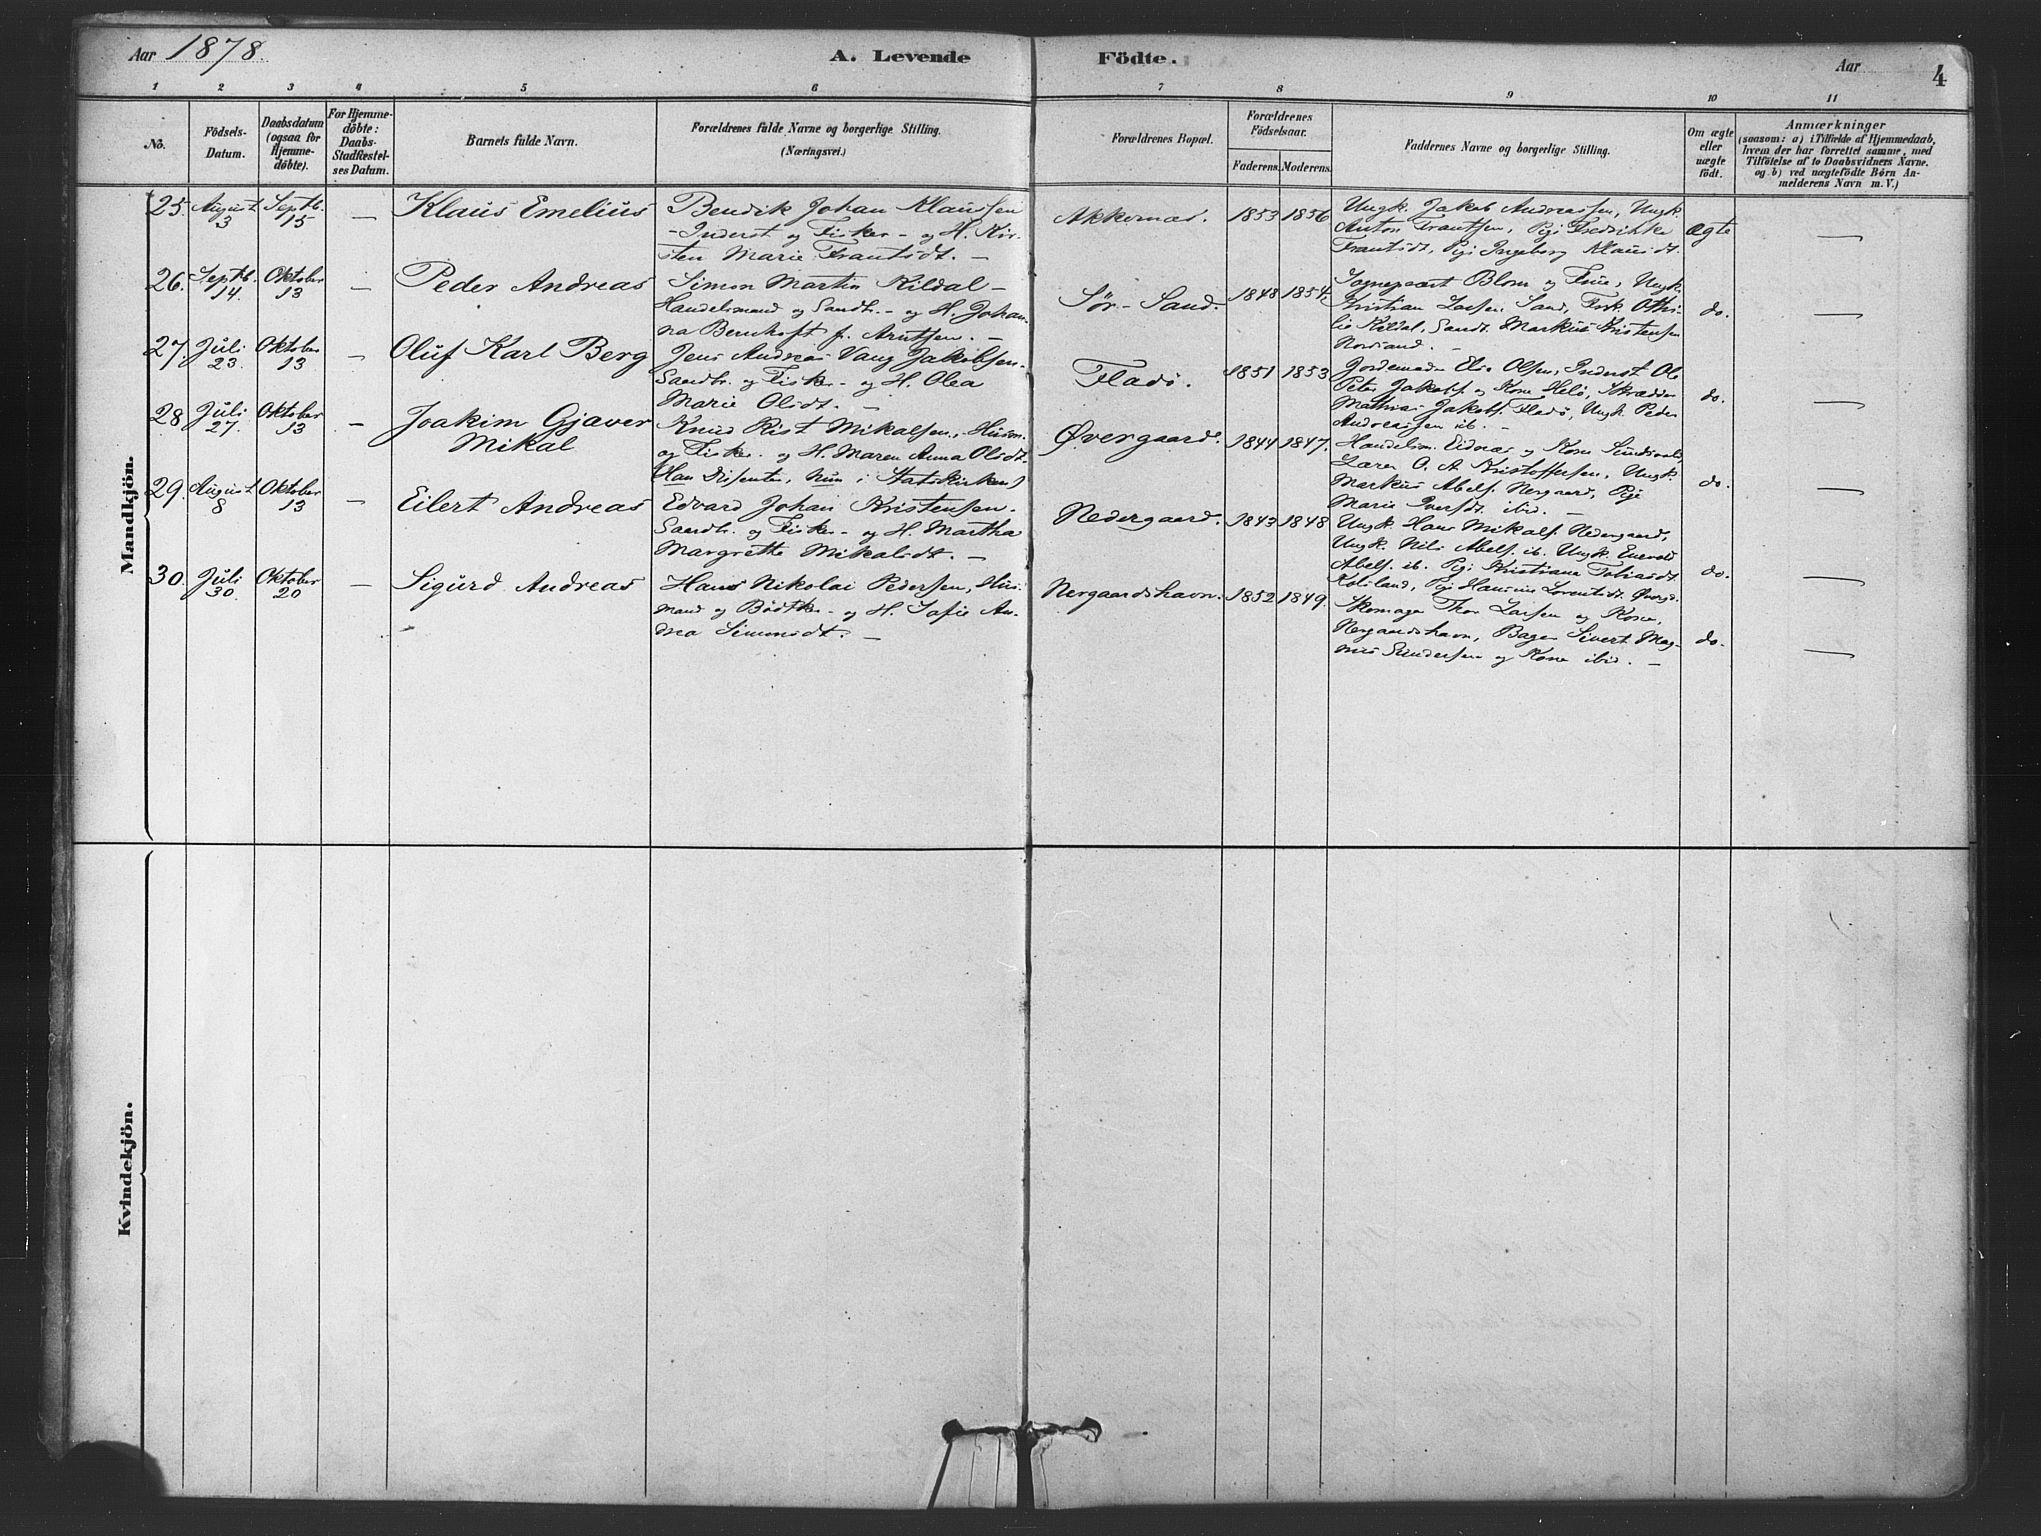 Aar 1878.
A. Levende Födte.
Aar
4
1 2 3 4 5 6 7 8 9 10 11
No.
Födsels-
Datum.
Daabsdatum
(ogsaa for
Hjemme-
döbte).
For Hjemme-
döbte:
Daabs-
Stadfæstel-
ses Datum.
Barnets fulde Navn.
Forældrenes fulde Navne og borgerlige Stilling.
(Næringsvei.)
Forældrenes Bopæl.
Forældrenes
Födselsaar.
Faderens. Moderens.
Faddernes Navne og borgerlige Stilling.
Om ægte
eller
uægte
födt.
Anmærkninger
(saasom: a) i Tilfælde af Hjemmedaab,
hvem der har forrettet samme, med
Tilföielse af to Daabsvidners Navne.
og b) ved uægtefödte Börn An-
melderens Navn m. V.)
Mandkjön.
25. August 3 Septb. 15 — Klaus Emelius
Bendik Johan Klaussen
- Inderst og Fisker - og H. Kir-
sten Marie Frantsdt. —
Akkernæs. 1853 1856
Ungk. Jakob Andreassen, Ungk.
Anton Frantsen, Pig. Fredrikke
Frantsdt, Pig. Ingeborg Klausdt.
Ægte —
26. Septb. 14. Oktober 13 — Peder Andreas
Simon Martin Kildal -
Handelsmand og Sandbr. - og H. Johan-
na Bernhoft f. Arntsen. —
Sör-Sand. 1848 1854.
Sognepræst Blom og Frue, Ungk.
Kristian Larsen Sand, Frk. Othi-
lie Kildal, Sandt. Markus Kristensen
Nordsand. —
do. —
27 Juli 23. Oktober 13 — Oluf Karl Berg
Jens Andreas Vang Jakobsen.
Sandbr. og Fisker - og H. Olea
Marie Olsdt. —
Fladö. 1851 1853
Jordemoder Elen Olsen, Inderst Ole
Peter Jakobs. og Kone Helö, Skrædder
Mathias Jakobs. Fladö, Ungk. Peder
Andreassen ib. —
do. —
28 Juli 27. Oktober 13 — Joakim Gjæver
Mikal
Knud Rist Mikalsen, Husm.
og Fisker. og H. Maren Anna Olsdt.
(Han Disenter, nun i Statskirken)
Øvergaard. 1844 1847.
Handelsm. Eidnæs og Kone Sundsvold,
Lærer O. A. Kristoffersen, Ungk.
Markus Abels. Nergaard, Pige
Marie Iversdt. ibid. —
do. —
29. August 8 Oktober 13 — Eilert Andreas
Edvard Johan Kristensen.
Sandbr. og Fisker - og H. Martha
Margrethe Mikalsdt. —
Nedergaard. 1843 1848
Ungk. Hans Mikals. Nedergaard,
Ungk. Nils Abels. ib. Ungk. Enevold
Abels. ib. Pig. Kristiane Tobiasdt.
Pig. Hansine Lorentsdt. Øverg.
do. —
30. Juli 30. Oktober 20 — Sigurd Andreas
Hans Nikolai Pedersen, Hus-
mand og Bödker - og H. Sofie An-
drea Simonsdt. —
Nergaardshavn. 1852 1849.
Skomager Thor Larsen og Kone,
Nergaardshavn, Bager Sivert Mag-
nus Gundersen og Kone ibid. —
do. —
Kvindekjön.